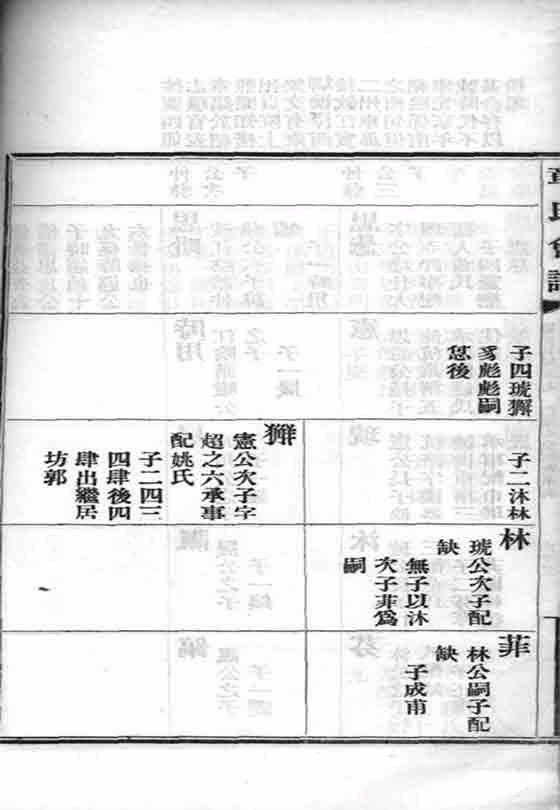 章氏會譜
子四琥獬
豸彪彪嗣
愆後
子二沐林
獬
憲公次子字
超之六承事
配姚氏
子二四三
四四肆後四
肆出繼居
坊郭
林
琥公次子配
缺
無子以沐
次子菲爲
嗣
菲
林公嗣子配
缺
子成甫